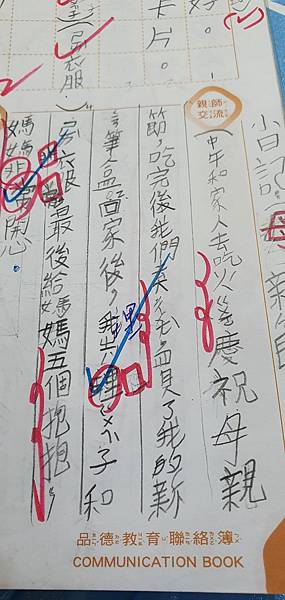 好。
卡片。
衣服。)
小日記:母親節
親師交流
(中午和家人去吃火鍋慶祝母親
節,吃完後我們去 買了我的新
筆盒回家後,我去 子和
衣服最後給媽媽五個抱抱,
媽媽非常開心
品德教育聯絡簿
COMMUNICATION BOOK